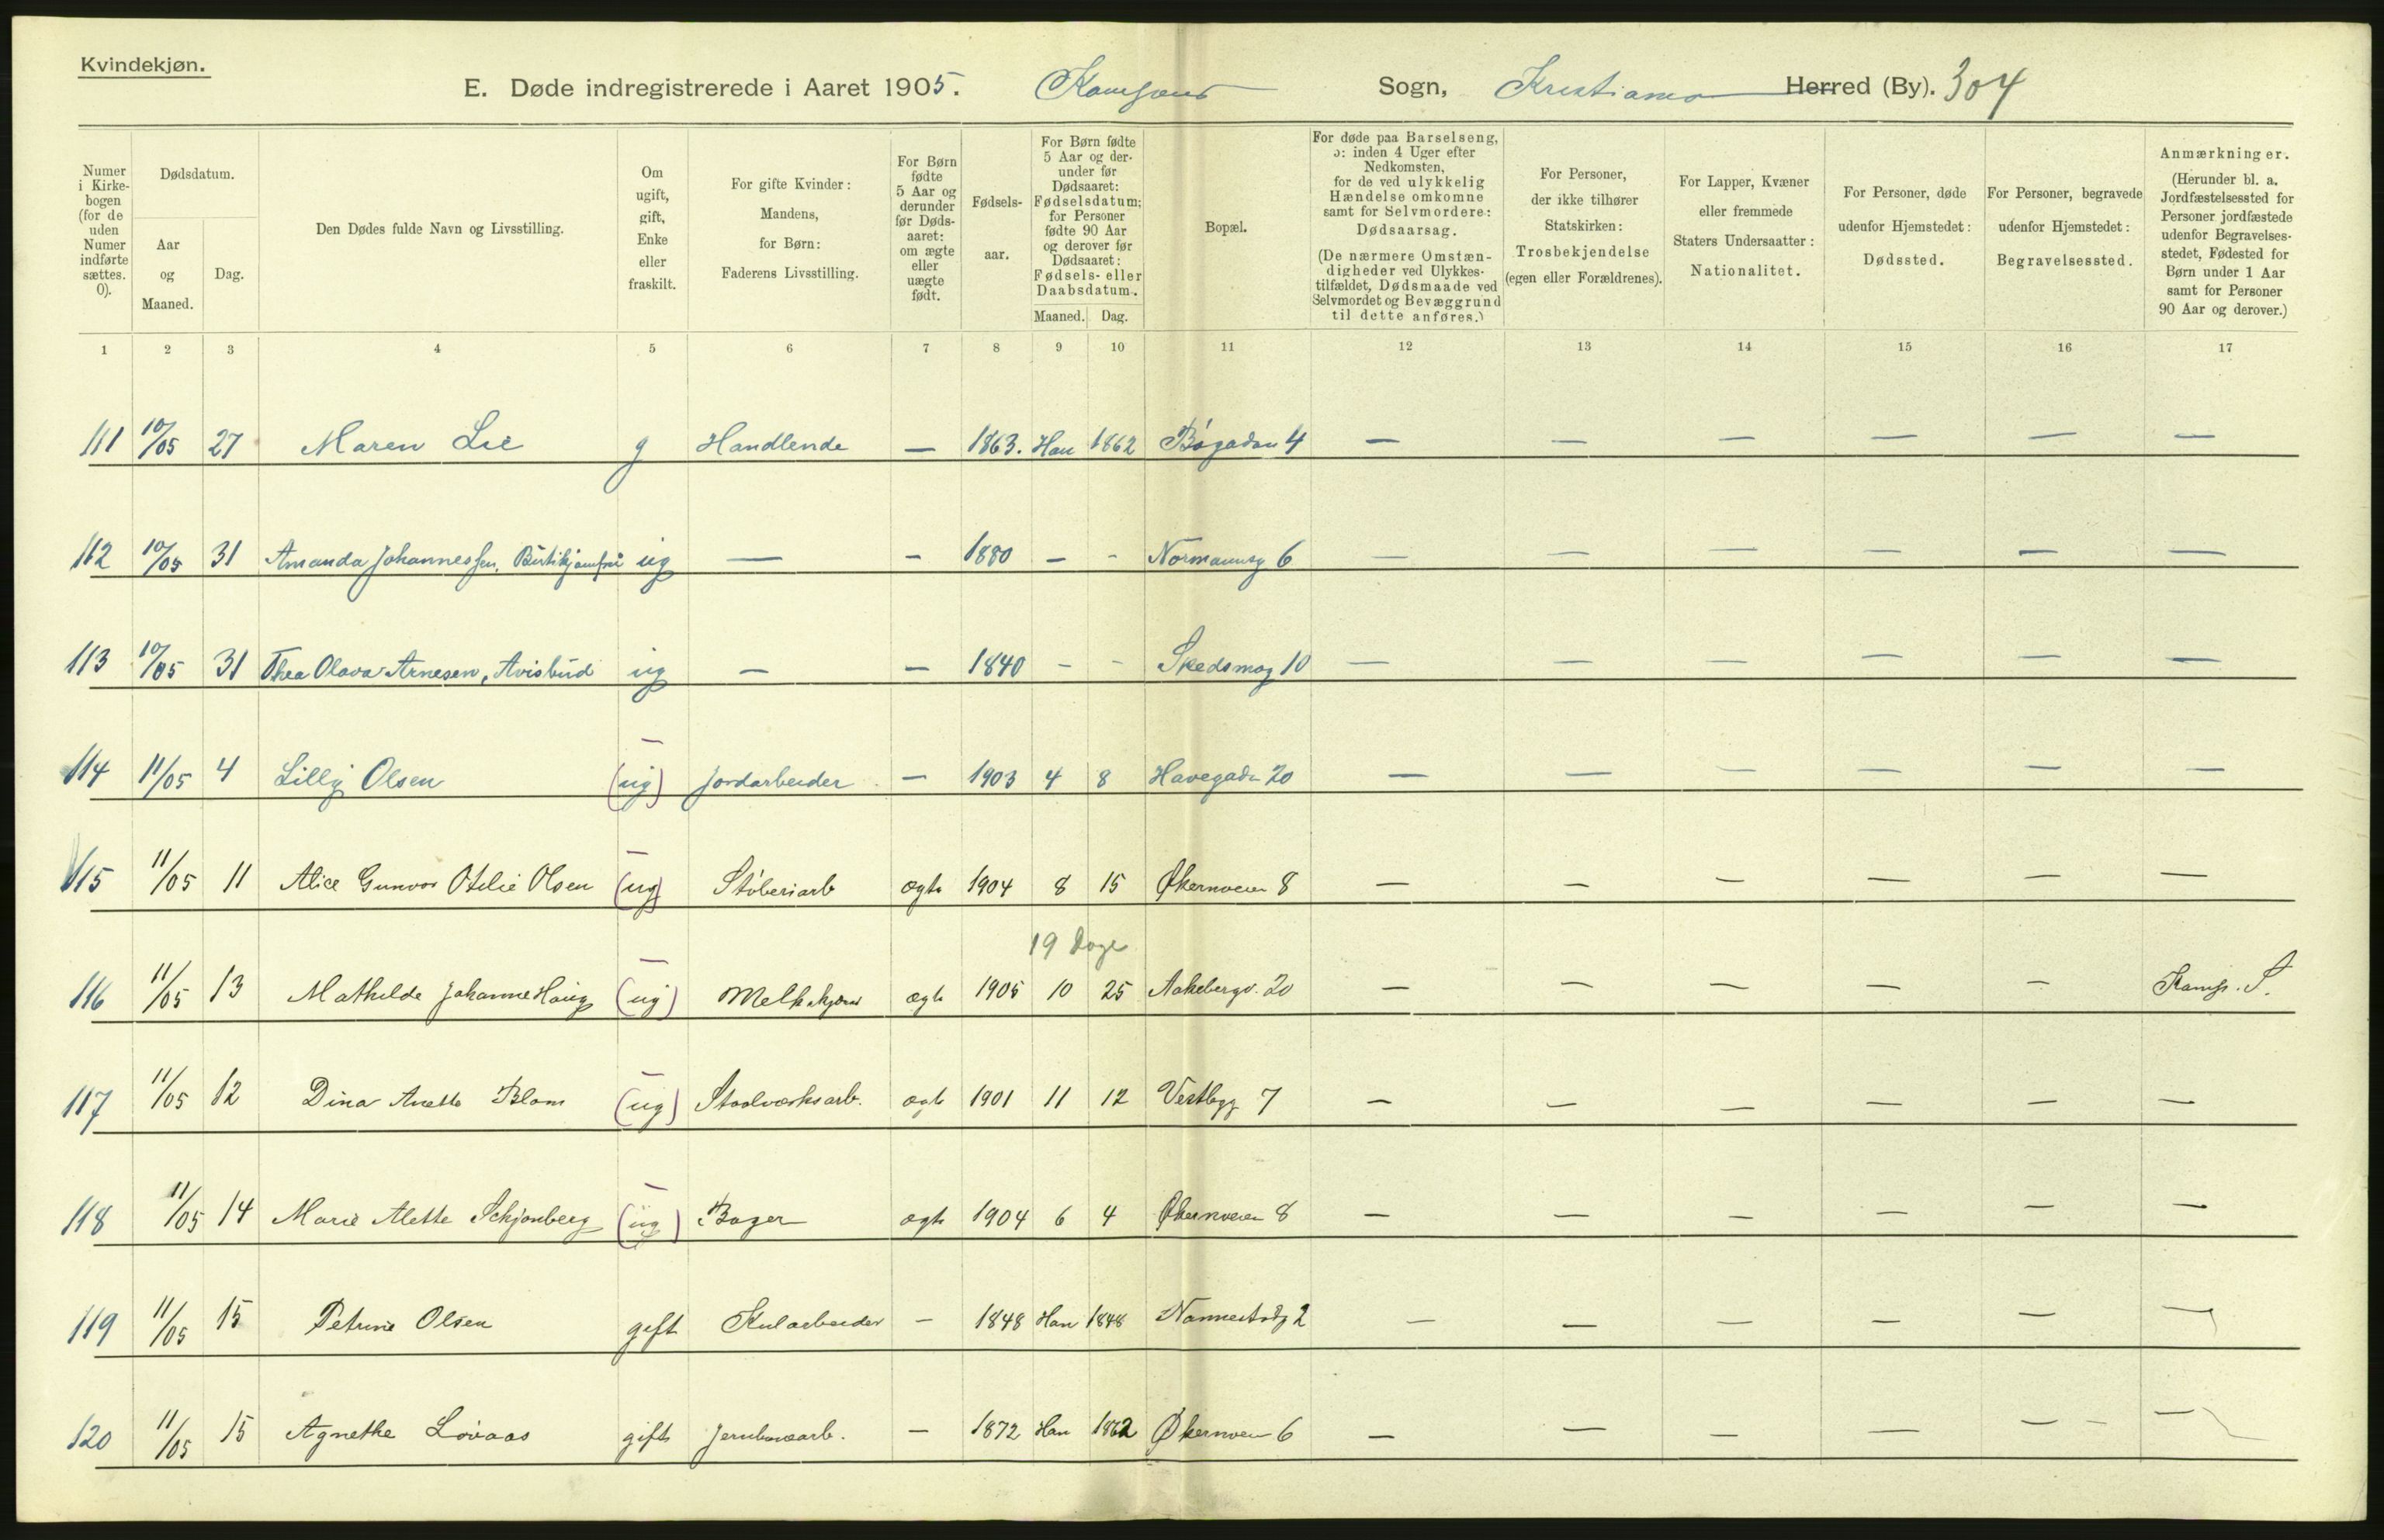 Kvindekjøn.
E. Døde indregistrerede i Aaret 1905. Kampens Sogn, Kristiania Herred (By). 304
Numer i Kirkebogen (for de uden Numer indførte sættes. 0).
Dødsdatum.
Aar og Maaned.
Dag.
Den Dødes fulde Navn og Livsstilling.
Om ugift, gift, Enke eller fraskilt.
For gifte Kvinder: Mandens, for Børn: Faderens Livsstilling.
For Børn fødte 5 Aar og derunder før Dødsaaret: om ægte eller uægte født.
Fødselsaar.
For Børn fødte 5 Aar og derunder før Dødsaaret: Fødselsdatum; for Personer fødte 90 Aar og derover før Dødsaaret: Fødsels- eller Daabsdatum.
Maaned. Dag.
Bopæl.
For døde paa Barselseng, ɔ: inden 4 Uger efter Nedkomsten, for de ved ulykkelig Hændelse omkomne samt for Selvmordere: Dødsaarsag.
(De nærmere Omstændigheder ved Ulykkestilfældet, Dødsmaade ved Selvmordet og Bevæggrund til dette anføres.)
For Personer, der ikke tilhører Statskirken: Trosbekjendelse (egen eller Forældrenes).
For Lapper, Kvæner eller fremmede Staters Undersaatter: Nationalitet.
For Personer, døde udenfor Hjemstedet: Dødssted.
For Personer, begravede udenfor Hjemstedet: Begravelsessted.
Anmærkninger.
(Herunder bl. a. Jordfæstelsessted for Personer jordfæstede udenfor Begravelsesstedet, Fødested for Børn under 1 Aar samt for Personer 90 Aar og derover.)
1 2 3 4 5 6 7 8 9 10 11 12 13 14 15 16 17
111 10/05 27 Maren Lie g Handlende — 1863. Han 1862 Bøgadan 4 — — — — — —
112 10/05 31 Amanda Johannessen, Butikjomfru ug — — 1880 — - Normannsg 6 — — — — — —
113 10/05 31 Thea Olava Arnesen, Avisbud ug — — 1840 - - Skedsmog 10 — — — — — —
114 11/05 4 Lilly Olsen (ug) Jordarbeider — 1903 4 8 Havegadn 20 — — — — — —
115 11/05 11 Alice Gunvor Otelie Olsen (ug) Støberiarb ægte 1904 8 15 Økernveien 8 — — — — — —
19 Dage
116 11/05 13 Mathilde Johanne Haug (ug) Melkekjører ægte 1905 10 25 Aakebergv. 20 — — — — — Kamp. S.
117 11/05 12 Dina Anette Blom (ug) Staalværksarb. ægte 1901 11 12 Vestbyg 7 — — — — — —
118 11/05 14 Marie Alette Schjønberg (ug) Bager ægte 1904 6 4 Økernveien 8 — — — — — —
119 11/05 15 Petrine Olsen gift Kularbeider — 1848 Han 1848 Nannestadg 2 — — — — — —
120 11/05 15 Agnethe Løvaas gift Jernbanearb. — 1872 Han 1862 Økernveien 6 — — — — — —